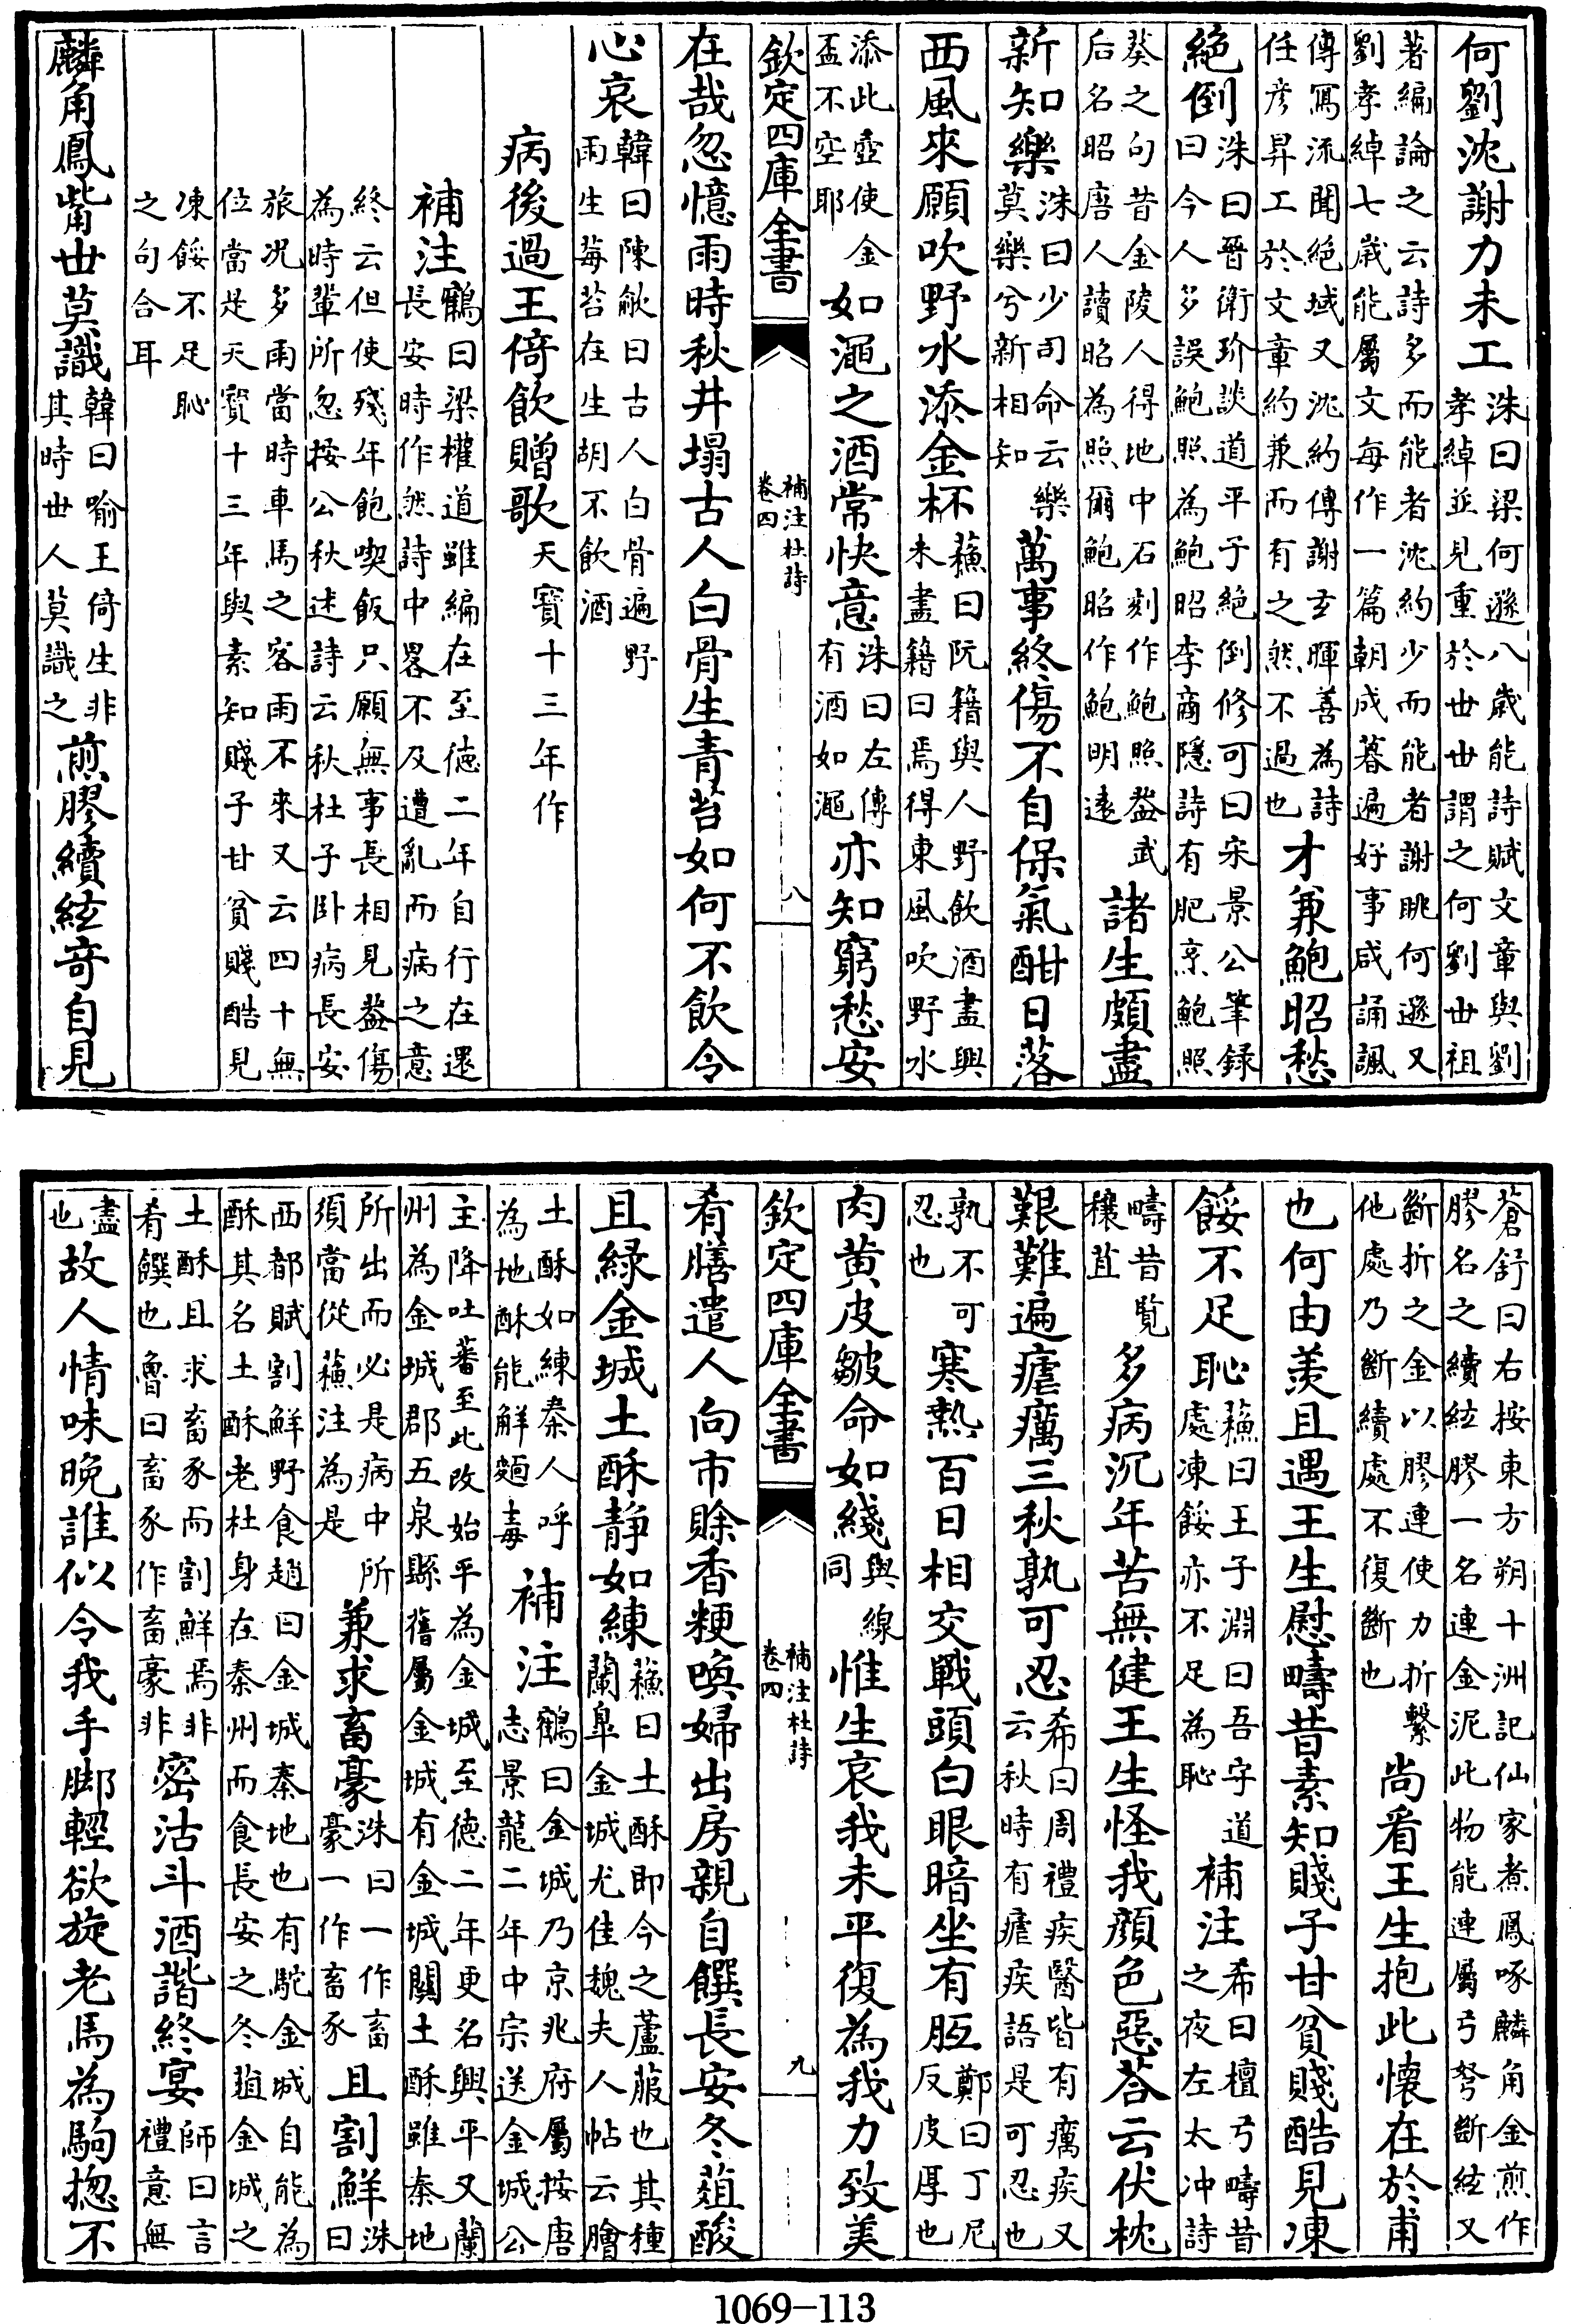 何劉沈謝力未工洙曰梁何遜八歳能詩賦文章與劉孝綽並見重於世世謂之何劉世祖
著編論之云詩多而能者沈約少而能者謝朓何遜又劉孝綽七歳能屬文每作一篇朝成暮遍好事咸誦諷
傳寫流聞絕域又沈約傳謝玄暉善為詩任彦昇工於文章約兼而有之然不過也才兼鮑昭愁
絕倒洙曰晉衛玠談道平子絕倒修可曰宋景公筆録曰今人多誤鮑照為鮑昭李商隱詩有肥烹鮑照
葵之句昔金陵人得地中石刻作鮑照葢武后名昭唐人讀昭為照爾鮑昭作鮑明逺諸生頗盡
新知樂洙曰少司命云樂莫樂兮新相知萬事終傷不自保氣酣日落
西風來願吹野水添金杯蘓曰阮籍與人野飲酒盡興未盡籍曰焉得東風吹野水
添此壺使金盃不空耶如澠之酒常快意洙曰左傳有酒如澠亦知窮愁安
欽定四庫全書 補注杜詩 卷四 八
在哉忽憶雨時秋井塌古人白骨生青苔如何不飲令
心哀韓曰陳歈曰古人白骨遍野雨生莓苔在生胡不飲酒
病後過王倚飲贈歌天寳十三年作
補注鶴曰梁權道雖編在至徳二年自行在還長安時作然詩中畧不及遭亂而病之意
終云但使殘年飽喫飯只願無事長相見葢傷為時輩所忽按公秋述詩云秋杜子卧病長安
旅況多雨當時車馬之客雨不來又云四十無位當是天寳十三年與素知賤子甘貧賤酷見
凍餒不足恥之句合耳
麟角鳳觜世莫識韓曰喻王倚生非其時世人莫識之煎膠續絃竒自見
蒼舒曰右按東方朔十洲記仙家煮鳳啄麟角金煎作膠名之續絃膠一名連金泥此物能連屬弓弩斷絃又
斷折之金以膠連使力折繫他處乃斷續處不復斷也尚看王生抱此懐在於甫
也何由羡且遇王生慰疇昔素知賤子甘貧賤酷見凍
餒不足恥蘓曰王子淵曰吾守道處凍餒亦不足為恥補注希曰檀弓疇昔之夜左太冲詩
疇昔覧穰苴多病沉年苦無健王生怪我顔色惡荅云伏枕
艱難遍瘧癘三秋孰可忍希曰周禮疾醫皆有癘疾又云秋時有瘧疾語是可忍也
孰不可忍也寒熱百日相交戰頭白眼暗坐有胝鄭曰丁尼反皮厚也
肉黄皮皺命如綫與線同惟生哀我未平復為我力致美
欽定四庫全書 補注杜詩 卷四 九
肴膳遣人向市賖香粳喚婦出房親自饌長安冬葅酸
且緑金城土酥静如練蘓曰土酥即今之蘆菔也其種蘭皐金城尤佳魏夫人帖云膾
土酥如練秦人呼為地酥能解麵毒補注鶴曰金城乃京兆府屬按唐志景龍二年中宗送金城公
主降吐蕃至此改始平為金城至徳二年更名興平又蘭州為金城郡五泉縣舊屬金城有金城關土酥雖秦地
所出而必是病中所須當從蘓注為是兼求畜豪洙曰一作畜豪一作畜豕且割鮮洙曰
西都賦割鮮野食趙曰金城秦地也有駝金城自能為酥其名土酥老杜身在秦州而食長安之冬葅金城之
土酥且求畜豕而割鮮焉非肴饌也魯曰畜豕作畜豪非密沽斗酒諧終宴師曰言禮意無
盡也故人情味晚誰似令我手脚輕欲旋老馬為駒揔不
1069-113